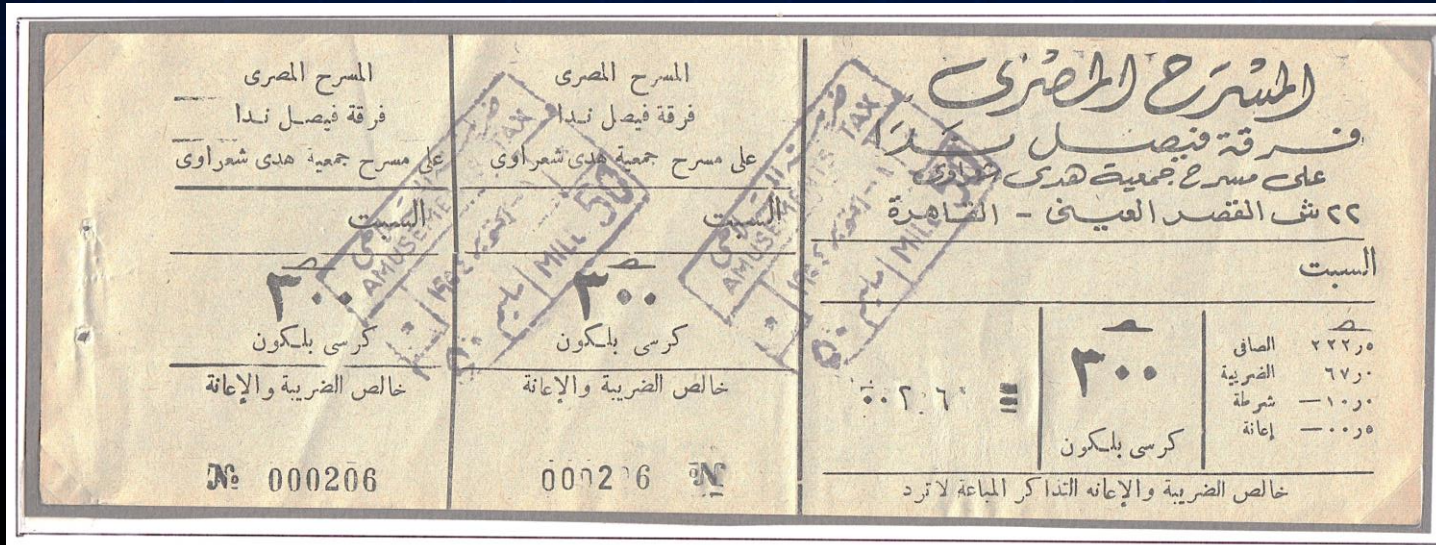 المسرح المصرى
فرقة فيصل ندا
على مسرح جمعية هدى شعراوى
٢٢ ش القصر العينى - القاهرة
السبت
صـ
٢٢٢ر٥ الصافى
٦٧ر٠ الضريبة
—١٠ر٠ شرطة
—٠٠ر٥ إعانة
صـ
٣٠٠
كرسى بلكون
خالص الضريبة والإعانه التذاكر المباعة لا ترد
المسرح المصرى
فرقة فيصل ندا
على مسرح جمعية هدى شعراوى
السبت
صـ
٣٠٠
كرسى بلكون
خالص الضريبة والإعانة
000206 №
المسرح المصرى
فرقة فيصل ندا
على مسرح جمعية هدى شعراوى
السبت
صـ
٣٠٠
كرسى بلكون
خالص الضريبة والإعانة
№ 000206
AMUSEMENTS TAX
٥٠ مليم | MILL 50
AMUSEMENTS TAX
٥٠ مليم | MILL 50